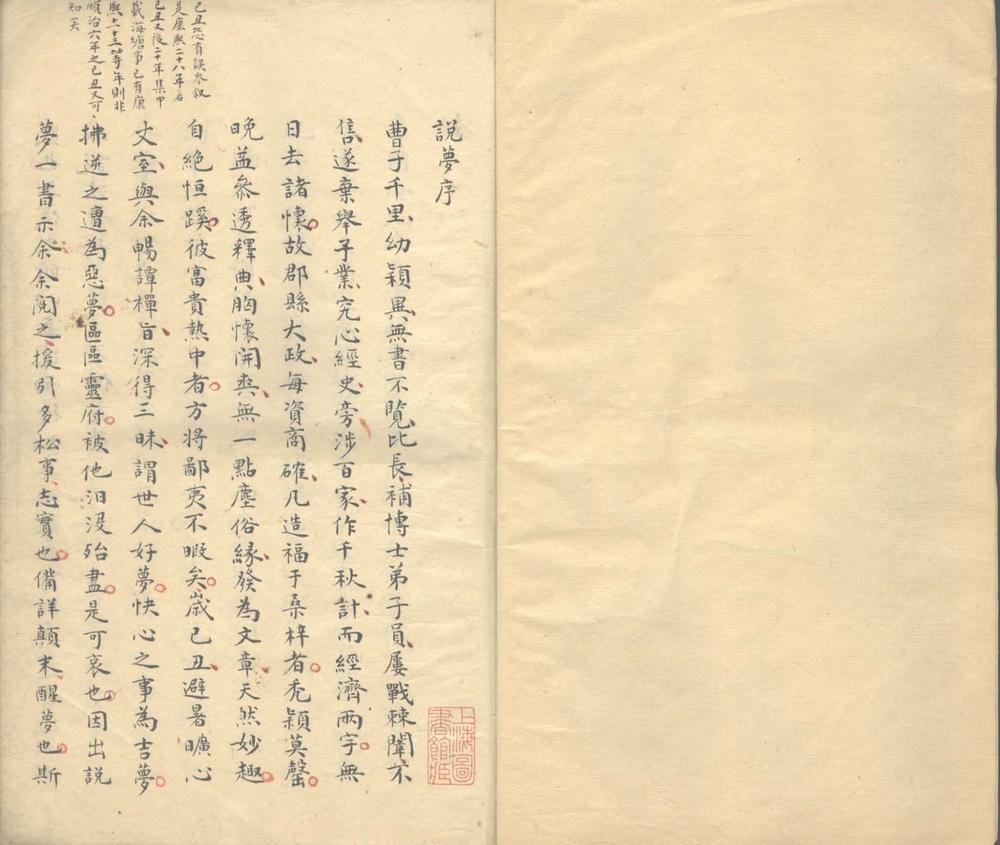 說夢序
曹子千里幼穎異無書不覽比長補博士弟子員屢戰棘闈不
售遂棄舉子業究心經史旁涉百家作千秋計而經濟兩字無
日去諸懷故郡縣大政每資商確凡造福于桑梓者禿穎莫罄
晚益叅透釋典胸懷開爽無一點塵俗緣發為文章天然妙趣
自絶恒蹊彼富貴熱中者方將鄙夷不暇矣嵗己丑避暑曠心
丈室與余暢譚禪旨深得三昧謂世人好夢快心之事為吉夢
拂逆之遭為惡夢區區靈府被他汨没殆盡是可哀也因出説
夢一書示余余閲之援引多松事志實也備詳顛末醒夢也斯
己丑恐有誤叅叙
是康熙二十八年若
己丑又後二十年集中
載海塘事已有康
熙二十三等年則非
順治六年之己丑又可
知矣
上海圖
書館藏